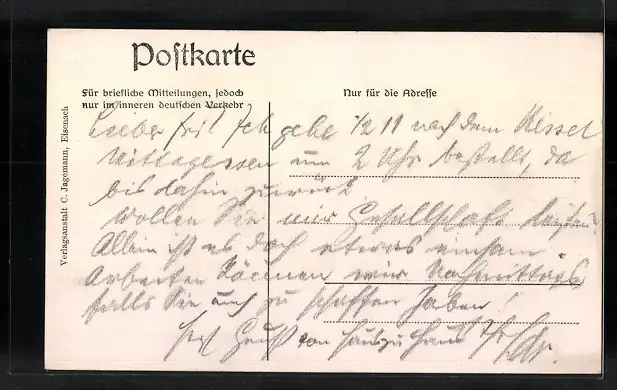 Postkarte
Für briefliche Mitteilungen, jedoch
nur im inneren deutschen Verkehr
Nur für die Adresse
Verlagsanstalt C. Jagemann, Eisenach
Lieber Ich gehe 1/2 11 nach dem Kissel
Mittagessen um 2 Uhr bestellt, da
bis dahin zurück
Wollen Sie mir Gesellschaft leisten?
Allein ist es doch etwas einsam.
Arbeiten können wir Nachmittags,
falls Sie auch zu schaffen haben!
Gruß von Haus zu Haus